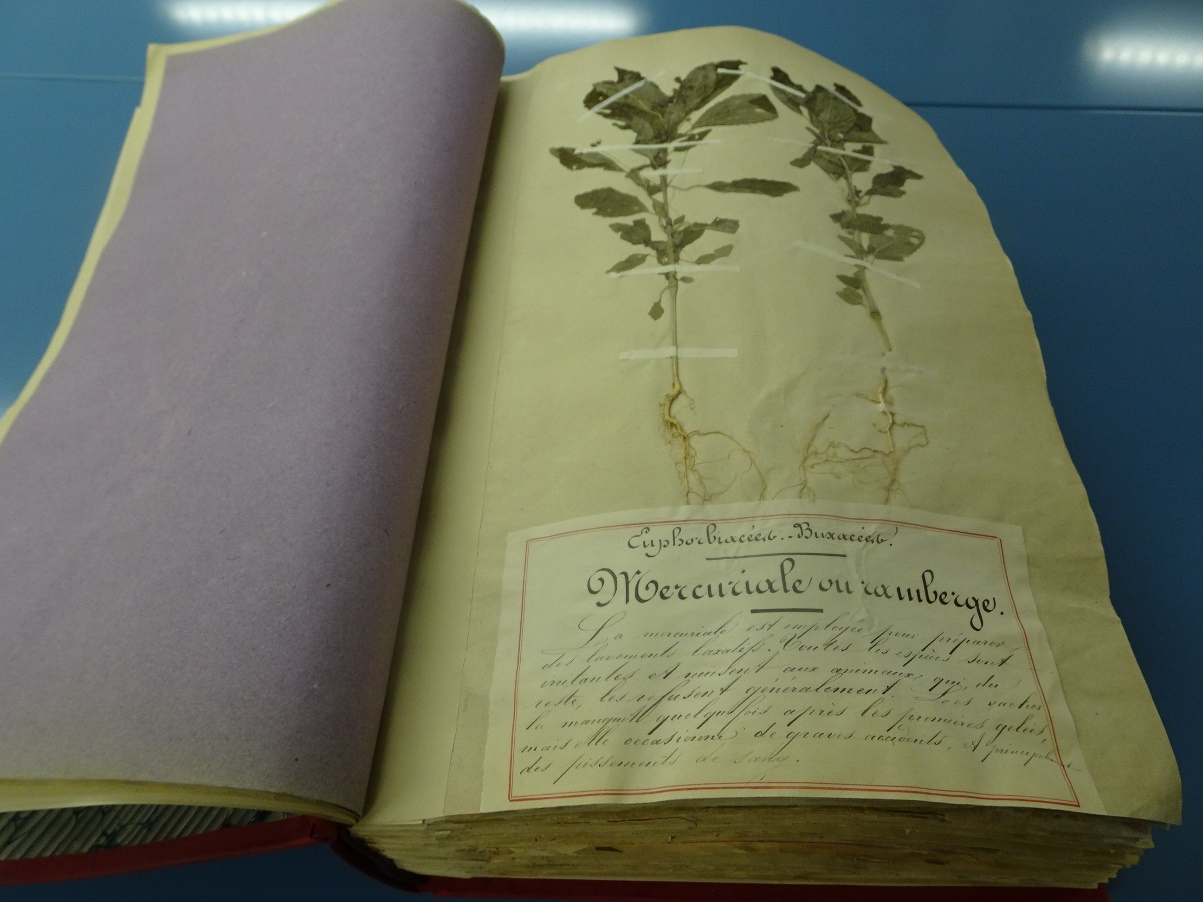 Euphorbiacées. - Buxacées.
Mercuriale ou ramberge.
La mercuriale est employée pour préparer
des lavements laxatifs. Toutes les espèces sont
irritantes et nuisent aux animaux, qui, du
reste, les refusent généralement. Les vaches
la mangent quelquefois après les premières gelées,
mais elle occasionne de graves accidents, et principalement
des pissements de sang.